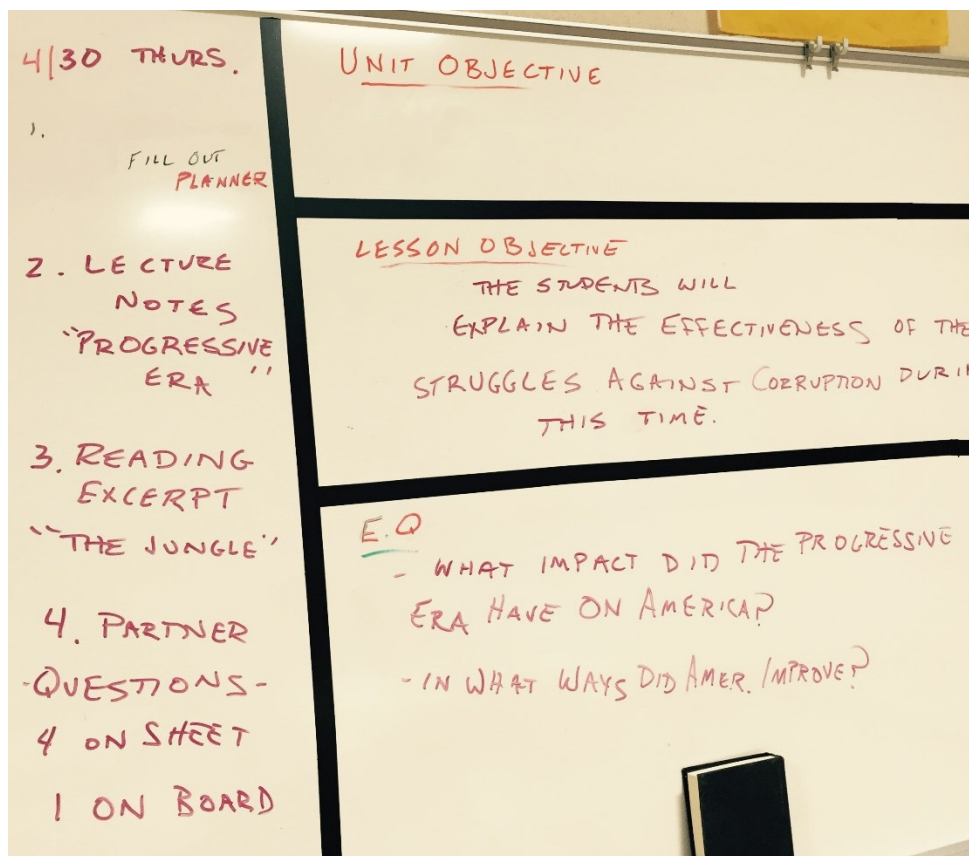 4/30 THURS.
1.
FILL OUT
PLANNER
2. LECTURE
NOTES
"PROGRESSIVE
ERA"
3. READING
EXCERPT
"THE JUNGLE"
4. PARTNER
-QUESTIONS-
4 ON SHEET
1 ON BOARD
UNIT OBJECTIVE
LESSON OBJECTIVE
THE STUDENTS WILL
EXPLAIN THE EFFECTIVENESS OF THE
STRUGGLES AGAINST CORRUPTION DURIN
THIS TIME.
E.Q
- WHAT IMPACT DID THE PROGRESSIVE
ERA HAVE ON AMERICA?
- IN WHAT WAYS DID AMER. IMPROVE?